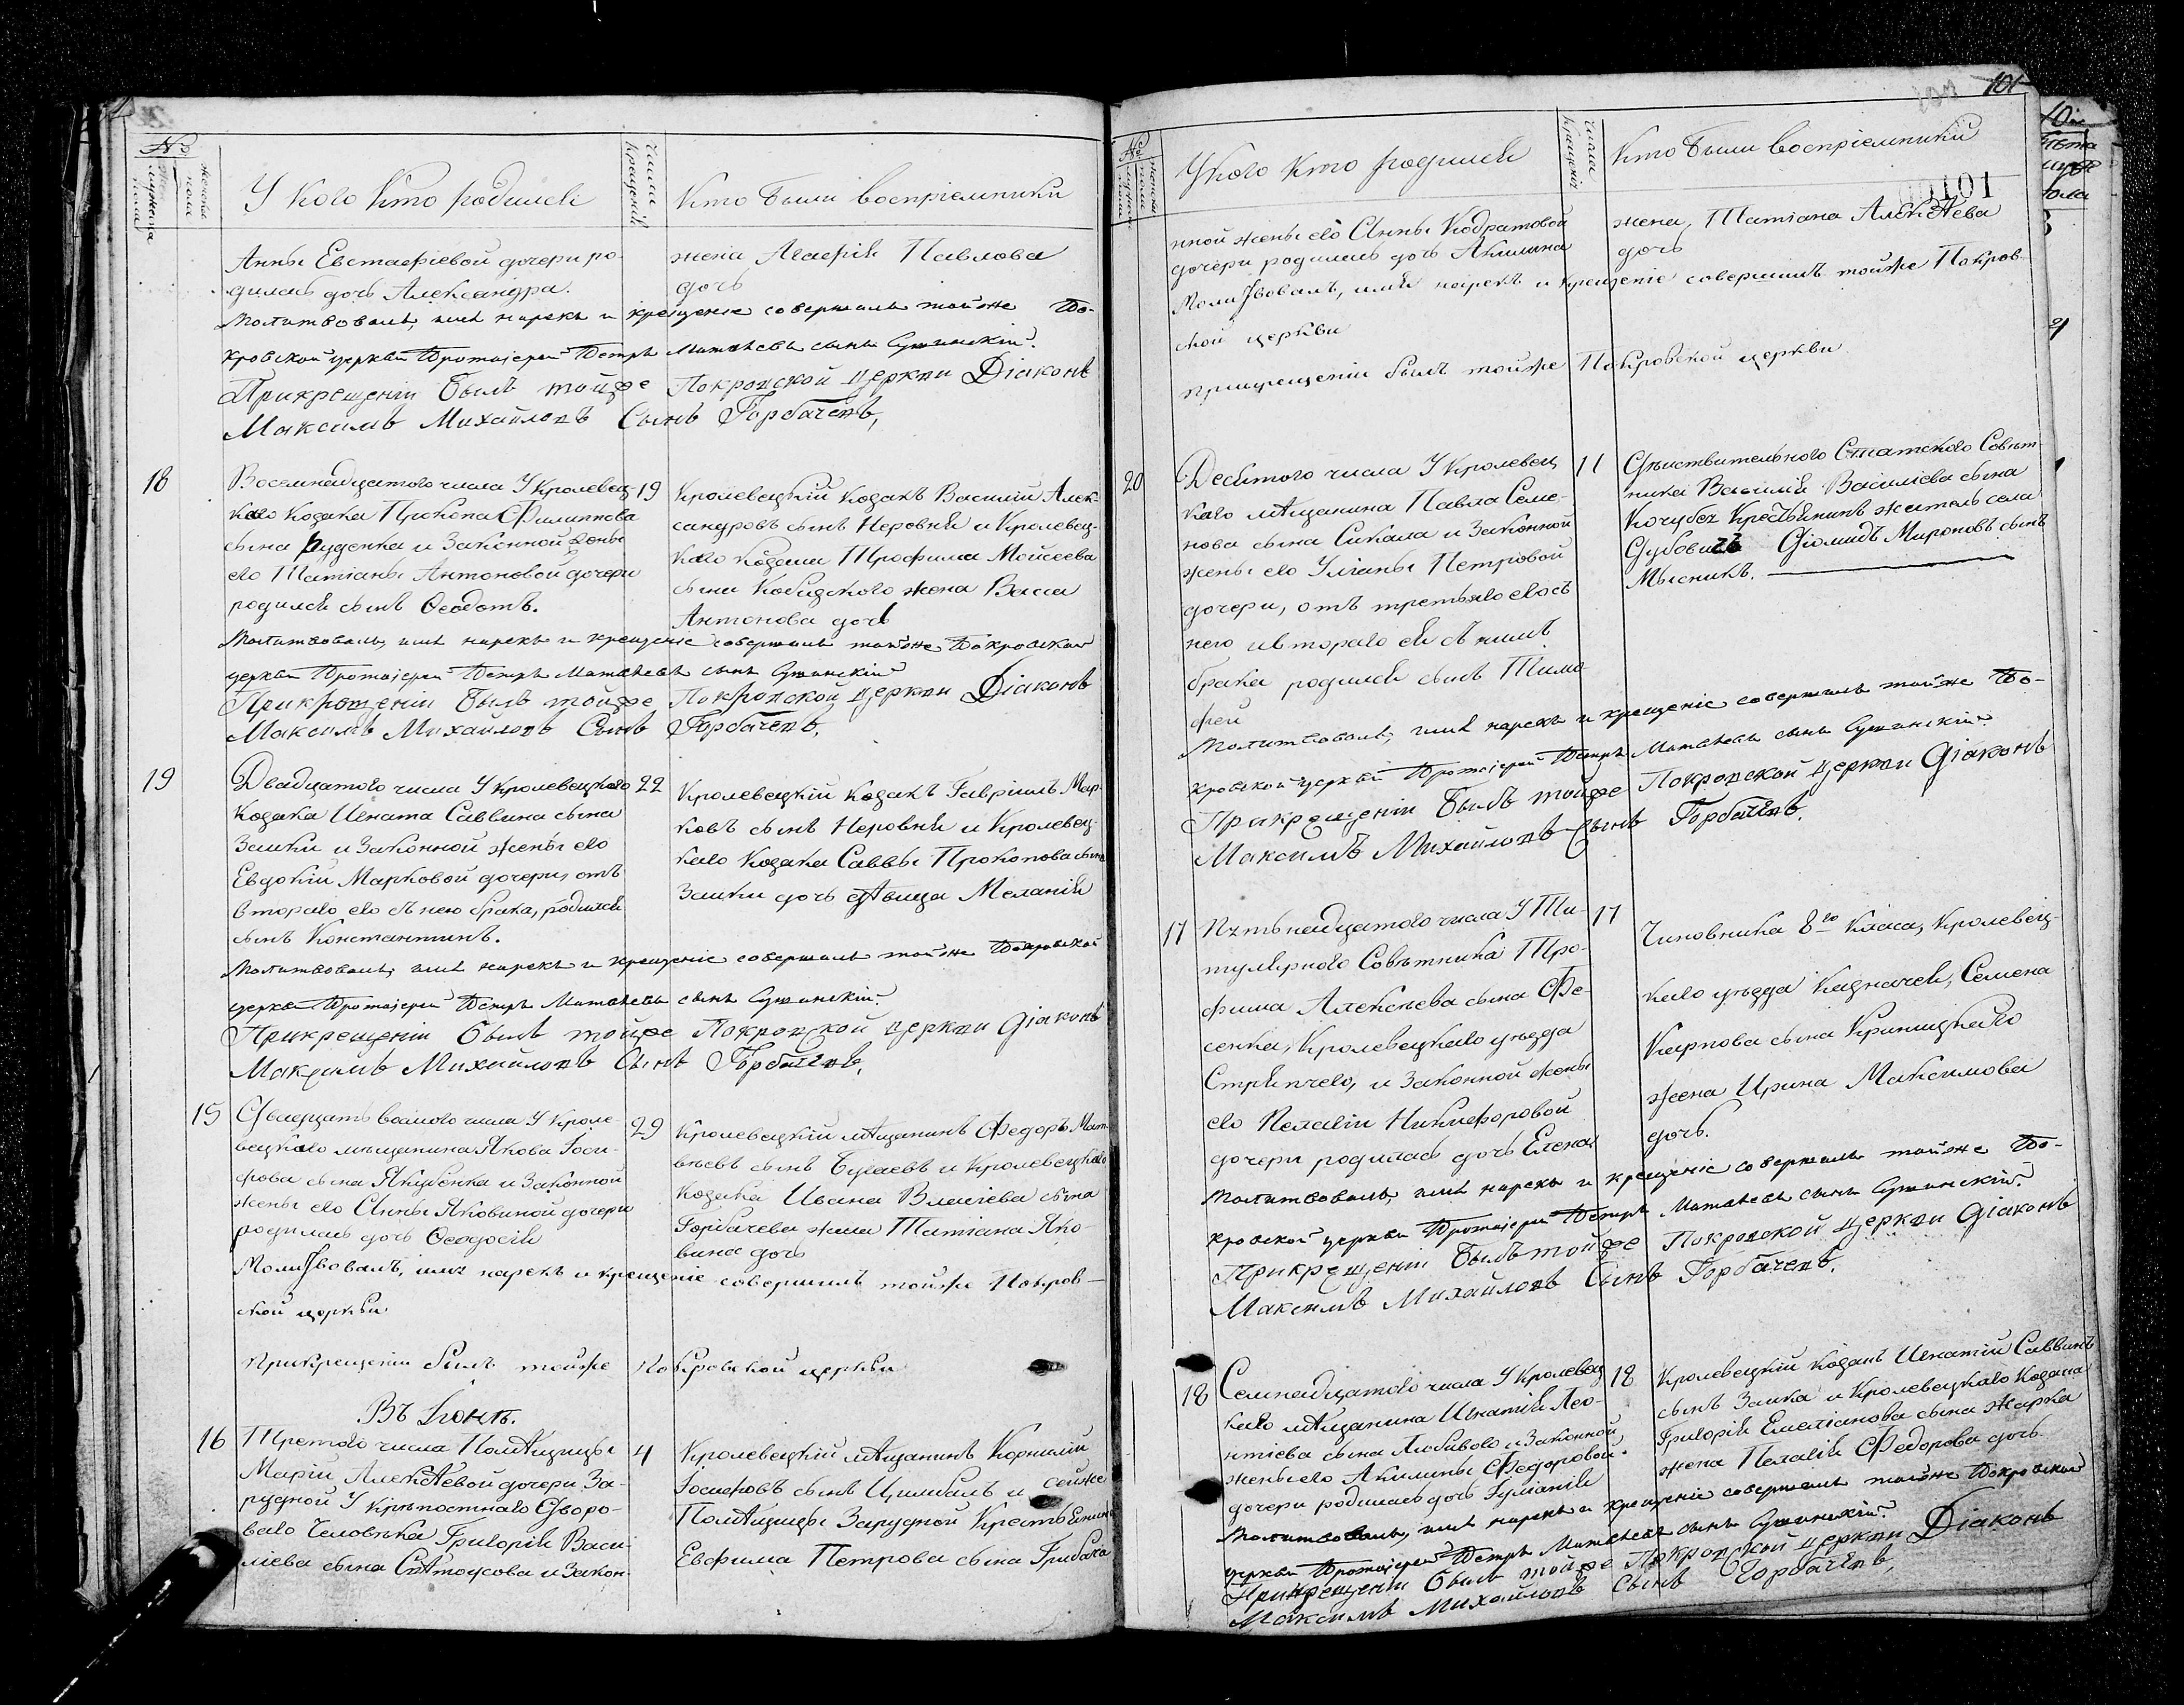 №
мужеска пола
женска пола
У кого кто родился
Числа крещенія
Кто были воспріемники
Анны Евстафіевой дочери ро-
дилась дочь Александра.
жена Агафія Павлова
дочь
Молитвовалъ, имя нарекъ и крещеніе совершилъ тойже По-
кровской церкви Протоіерей Петръ Матвѣевъ сынъ
Прикрещеніи былъ тойже Покровской церкви Діаконъ
Максимъ Михайловъ Сынъ Горбачевъ,
18
Восемнадцатого числа У Кролевец-
каго Козака Прокопа Филиппова
сына Руденка и Законной жены
его Татіаны Антоновой дочери
родился сынъ Ѳеодотъ.
19
Кролевецкій Козакъ Василій Алек-
сандровъ сынъ Неровня и Кролевец-
каго Козака Трофима Мойсеева
сына жена Васса
Антонова дочь
Молитвовалъ, имя нарекъ и крещеніе совершилъ тойже Покровской
церкви Протоіерей Петръ Матвѣевъ сынъ
Прикрещеніи былъ тойже Покровской церкви Діаконъ
Максимъ Михайловъ Сынъ Горбачевъ,
19
Двадцатого числа У Кролевецкого
Козака Игната Саввина сына
Заики и Законной жены его
Евдокіи Марковой дочери, отъ
втораго его съ нею брака, родился
сынъ Константинъ.
22
Кролевецкій Козакъ Гавріилъ Мар-
ковъ сынъ Неровня и Кролевец-
каго Козака Саввы Прокопова сына
Заики дочь дѣвица Меланія
Молитвовалъ, имя нарекъ и крещеніе совершилъ тойже Покровской
церкви Протоіерей Петръ Матвѣевъ сынъ
Прикрещеніи былъ тойже Покровской церкви Діаконъ
Максимъ Михайловъ Сынъ Горбачевъ,
15
Двадцать восмого числа У Кроле
вецкаго мѣщанина Якова Іоси-
фова сына Якубенка и Законной
жены его Анны Яковиной дочери
родилась дочь Ѳеодосія
29
Кролевецкій мѣщанинъ Федоръ Мат-
вѣевъ сынъ Бугаевъ и Кролевецкаго
Козака Ивана Власіева сына
Горбачева жена Татіана Яко-
вина дочь
Молитвовалъ, имя нарекъ и крещеніе совершилъ тойже Покров-
ской церкви
Прикрещеніи былъ тойже Покровской церкви
Въ Іюнѣ.
16
Третого числа Помѣщицы
Маріи Алексѣевой дочери За-
рудной У крѣпостнаго Дворо-
ваго Человѣка Григорія Васи-
ліева сына и Закон-
4
Кролевецкій мѣщанинъ Корнилій
Іосифовъ сынъ Цимбалъ и сейже
Помѣщицы Зарудной Крестьянина
Евфима Петрова сына Грибака
101
00101
№
У кого кто родился
Числа крещенія
Кто были воспріемники
нной жены его Анны Кодратовой
дочери родилась дочь Акилина
жена, Татіана Алексѣева
дочь
Молитвовалъ, имя нарекъ и крещеніе совершилъ тойже Покров-
ской церкви
прикрещеніи былъ тойже Покровской церкви
20
Десятого числа У Кролевец
каго мѣщанина Павла Семе-
нова сына Сикала и Законной
жены его Уліаны Петровой
дочери, отъ третьяго его съ
нею и втораго ея съ нимъ
брака родился сынъ Тимо
фей
11
Дѣйствительного Статского Совѣт-
ника Василія Василіева сына
Кочубея Крестьянинъ житель села
Дубовичъ Діомидъ Мироновъ сынъ
Мысникъ.
Молитвовалъ, имя нарекъ и крещеніе совершилъ тойже По-
кровской церкви Протоіерей Петръ Матвѣевъ сынъ
Прикрещеніи былъ тойже Покровской церкви Діаконъ
Максимъ Михайловъ Сынъ Горбачевъ,
17
Пятьнадцатого числа У Ти-
тулярного Совѣтника Тро-
фима Алексѣева сына Фе-
сенка, Кролевецкаго уѣзда
Стряпчего, и Законной жены
его Пелагіи Никифоровой
дочери родилась дочь Елена
17
Чиновника 8го Класа, Кролевец-
каго уѣзда Казначея, Семена
Карпова сына Криницкаго
жена Ирина Максимова
дочь.
Молитвовалъ, имя нарекъ и крещеніе совершилъ тойже По-
кровской церкви Протоіерей Петръ Матвѣевъ сынъ
Прикрещеніи былъ тойже Покровской церкви Діаконъ
Максимъ Михайловъ Сынъ Горбачевъ,
18
Семнадцатого числа У Кролевец
каго мѣщанина Игнатія Лео-
нтіева сына Любивого и Законной
жены его Акилины Федоровой
дочери родилась дочь Іуліанія
18
Кролевецкій Козакъ Игнатій Саввинъ
сынъ Заика и Кролевецкаго Козака
Григорія Емеліанова сына Жарка
жена Пелагія Федорова дочь.
Молитвовалъ, имя нарекъ и крещеніе совершилъ тойже Покровской
церкви Протоіерей Петръ Матвѣевъ сынъ
Прикрещеніи былъ тойже Покровской церкви Діаконъ
Максимъ Михайловъ Сынъ Горбачевъ,